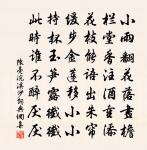 小雨翻花落畫檐
蘭堂香炷酒重添
花枝能語出朱帘
緩步金蓮移小小
持杯玉筍露纖纖
此時誰不醉厭厭
陳亮浣溪沙詞典網書